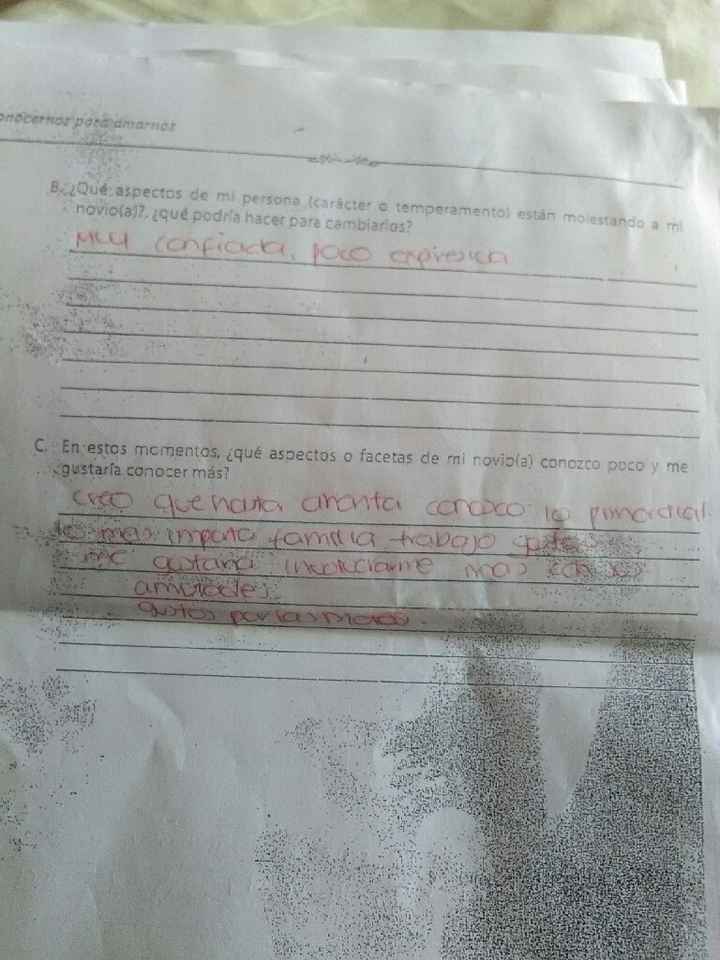 onocernos para amarnos
B. ¿Qué aspectos de mi persona (carácter o temperamento) están molestando a mi
novio(a)?, ¿qué podría hacer para cambiarlos?
Muy confiada, poco expresiva
C. En estos momentos, ¿qué aspectos o facetas de mi novio(a) conozco poco y me
gustaría conocer más?
creo que hasta ahorita conosco lo primordial
lo mas familia trabajo
me gustaria involuciarme mas con sus
amistades.
gustos por las motos.